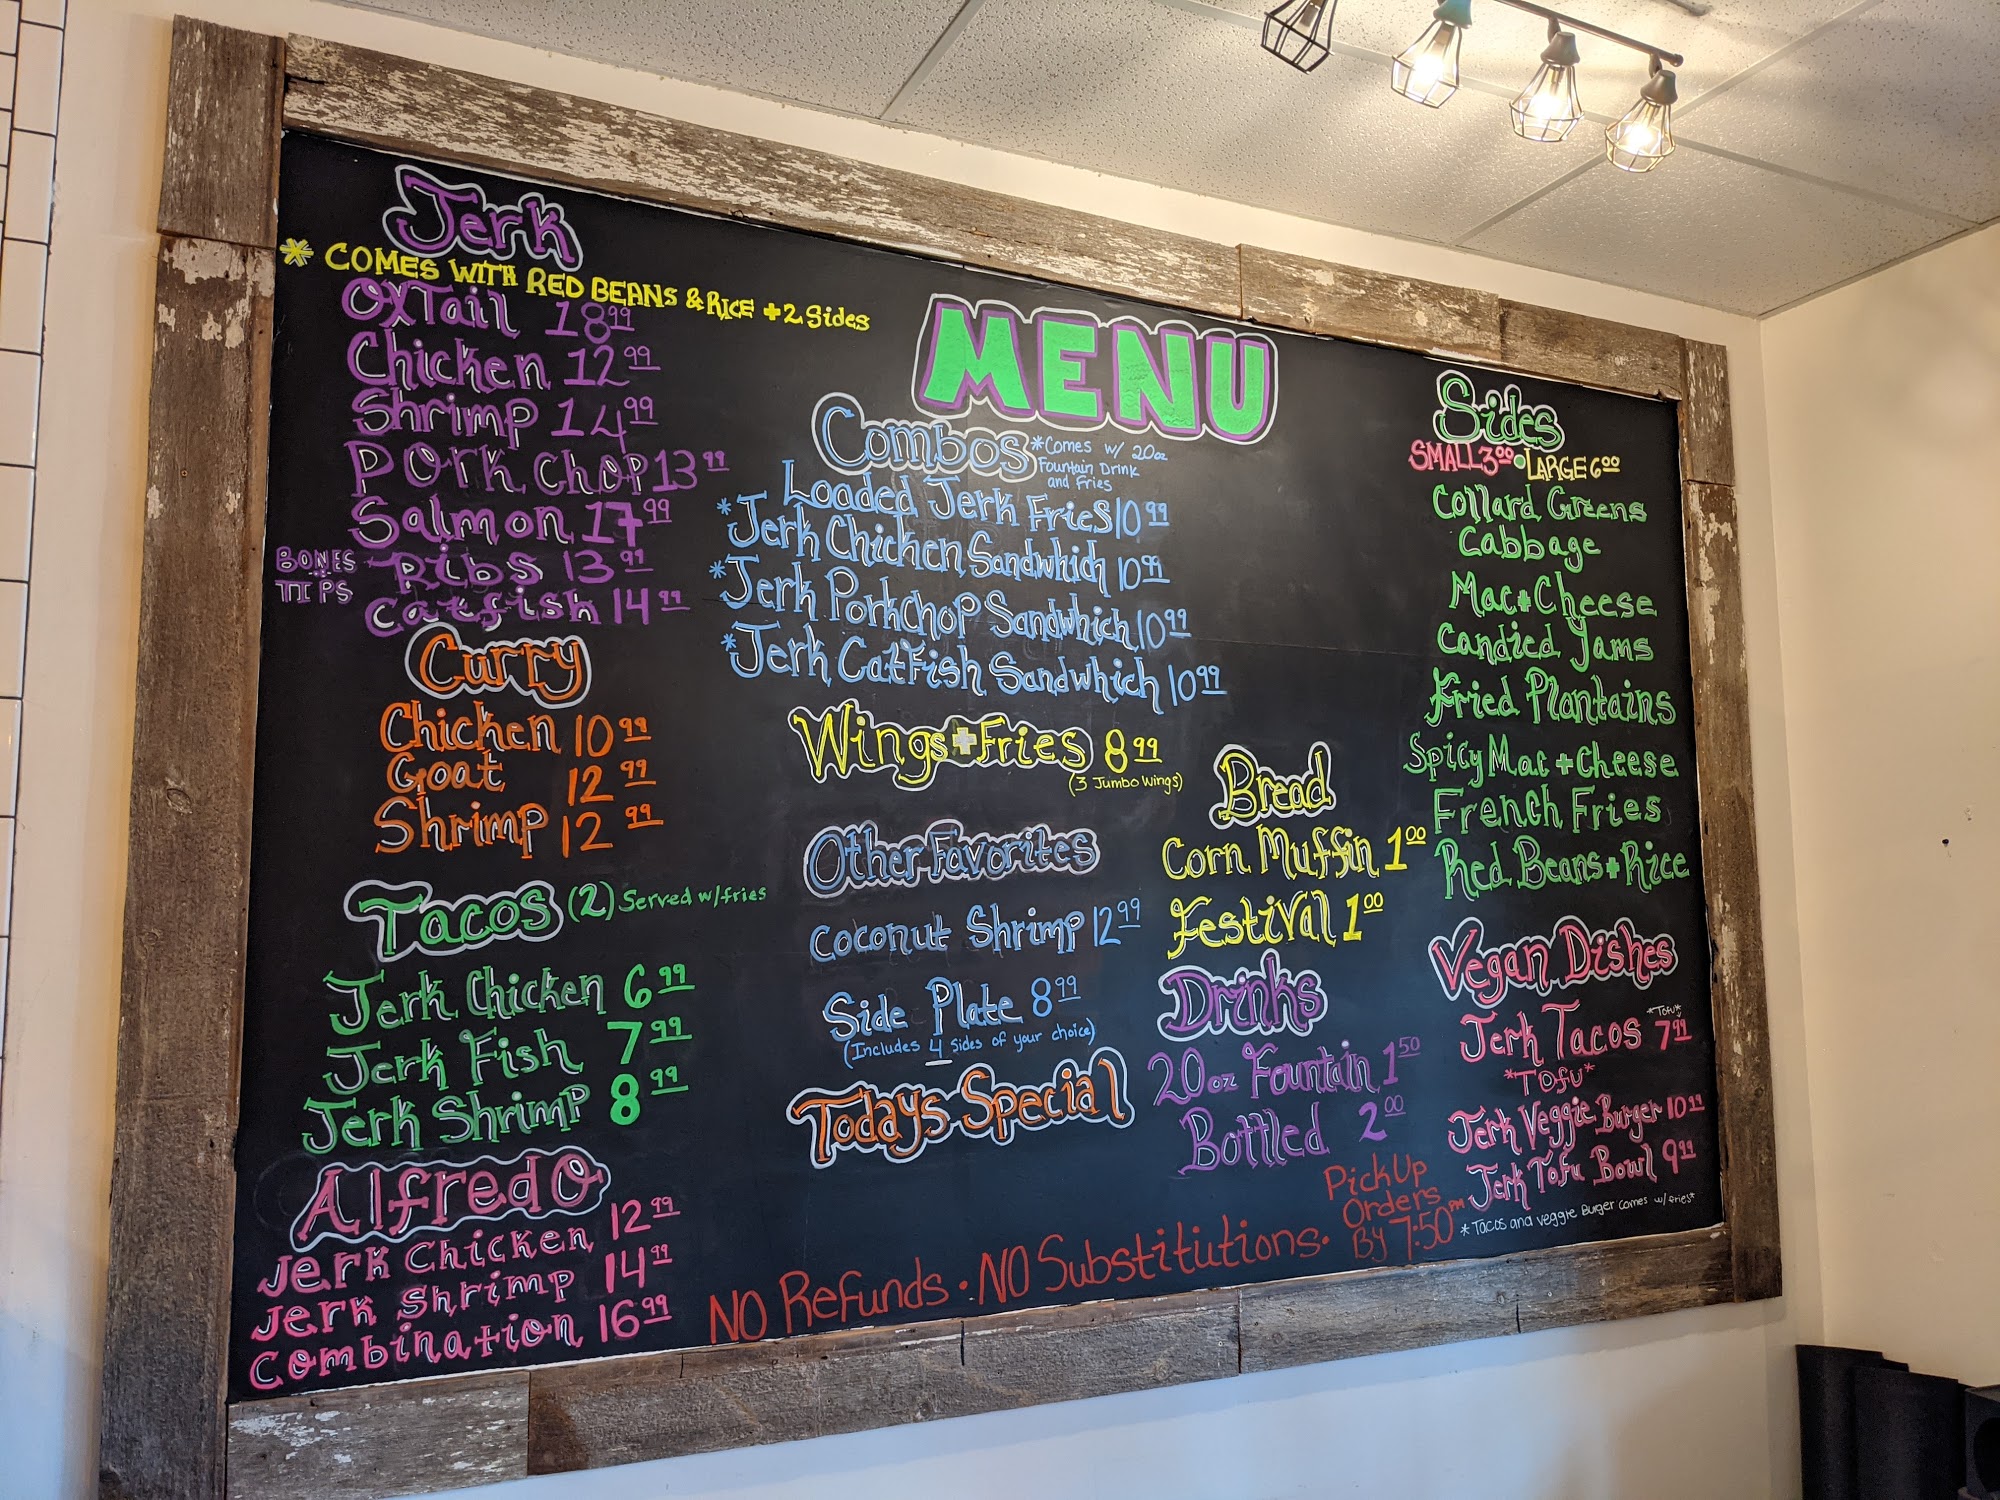 Jerk
* COMES WITH RED BEANS & RICE + 2 Sides
OxTail 18 99
Chicken 12 99
Shrimp 14 99
Pork Chop 13 99
Salmon 17 99
BONES
TIPS
Ribs 13 99
Catfish 14 99
Curry
Chicken 10 99
Goat 12 99
Shrimp 12 99
Tacos (2) Served w/fries
Jerk Chicken 6 99
Jerk Fish 7 99
Jerk Shrimp 8 99
Alfredo
Jerk Chicken 12 99
Jerk Shrimp 14 99
Combination 16 99
MENU
Combos *Comes w/ 20oz
Fountain Drink
and Fries
Loaded Jerk Fries 10 99
*Jerk Chicken Sandwhich 10 99
*Jerk Porkchop Sandwhich 10 99
*Jerk Catfish Sandwhich 10 99
Wings + Fries 8 99
(3 Jumbo Wings)
Other Favorites
Coconut Shrimp 12 99
Side Plate 8 99
(Includes 4 sides of your choice)
Todays Special
Bread
Corn Muffin 1 00
Festival 1 00
Drinks
20oz Fountain 1 50
Bottled 2 00
Sides
SMALL 3 00 • LARGE 6 00
Collard Greens
Cabbage
Mac + Cheese
Candied Yams
Fried Plantains
Spicy Mac + Cheese
French Fries
Red Beans + Rice
Vegan Dishes
*Tofu*
Jerk Tacos 7 99
*Tofu*
Jerk Veggie Burger 10 99
Jerk Tofu Bowl 9 99
*Tacos and veggie Burger comes w/fries*
Pick Up
Orders
By 7:50 PM
NO Refunds • NO Substitutions •